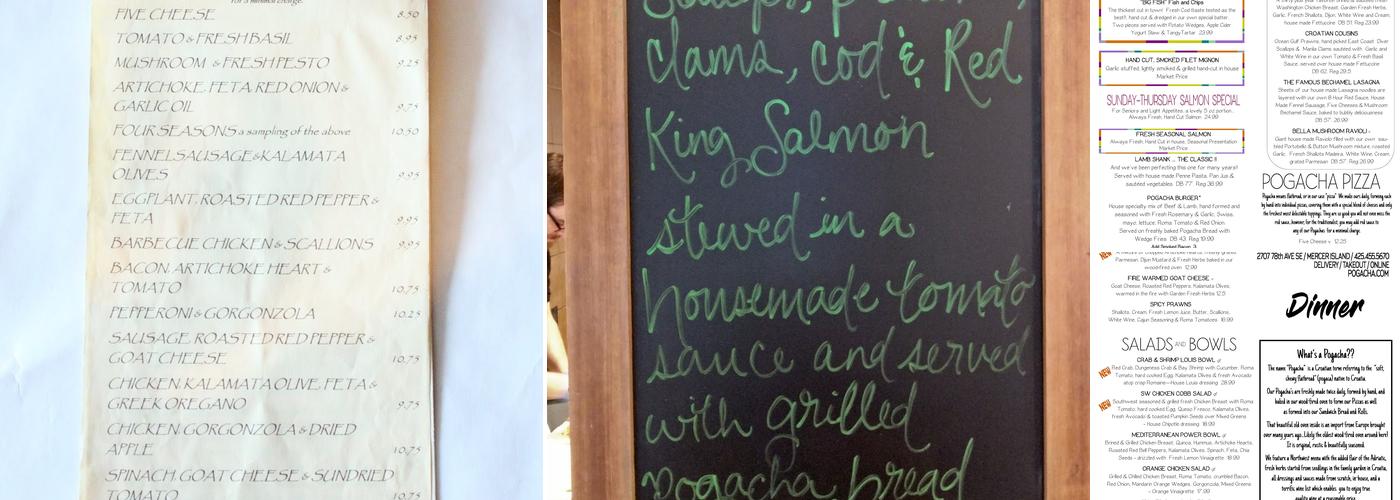 for a minimal charge.
FIVE CHEESE 8.50
TOMATO & FRESH BASIL 8.95
MUSHROOM & FRESH PESTO 9.25
ARTICHOKE, FETA, RED ONION &
GARLIC OIL 9.75
FOUR SEASONS a sampling of the above 10.50
FENNEL SAUSAGE & KALAMATA
OLIVES 9.95
EGGPLANT, ROASTED RED PEPPER &
FETA 9.95
BARBECUE CHICKEN & SCALLIONS 9.95
BACON, ARTICHOKE HEART &
TOMATO 10.75
PEPPERONI & GORGONZOLA 10.25
SAUSAGE, ROASTED RED PEPPER &
GOAT CHEESE 10.75
CHICKEN, KALAMATA OLIVE, FETA &
GREEK OREGANO 9.75
CHICKEN, GORGONZOLA & DRIED
APPLE 10.75
SPINACH, GOAT CHEESE & SUNDRIED
TOMATO 10.75
Clams, Cod & Red
King Salmon
stewed in a
housemade tomato
sauce and served
with grilled
pogacha bread
"BIG FISH" Fish and Chips
The thickest cut in town! Fresh Cod (taste tested as the
best), hand cut & dredged in our own special batter.
Two pieces served with Potato Wedges, Apple Cider
Yogurt Slaw & TangyTartar 23.99
HAND CUT, SMOKED FILET MIGNON
Garlic stuffed, lightly smoked & grilled hand-cut in house
Market Price
SUNDAY-THURSDAY SALMON SPECIAL
For Seniors and Light Appetites, a lovely 5 oz portion.
Always Fresh, Hand Cut Salmon 24.99
FRESH SEASONAL SALMON
Always Fresh, Hand Cut in house, Seasonal Presentation
Market Price
LAMB SHANK .. THE CLASSIC !!
And we've been perfecting this one for many years!!
Served with house made Penne Pasta, Pan Jus &
sautéed vegetables DB 77 Reg 36.99
POGACHA BURGER*
House specialty mix of Beef & Lamb, hand formed and
seasoned with Fresh Rosemary & Garlic, Swiss,
mayo, lettuce, Roma Tomato & Red Onion.
Served on freshly baked Pogacha Bread with
Wedge Fries DB 43 Reg 19.99
Add Smoked Bacon 3
NEW
Parmesan, Dijon Mustard & Fresh Herbs baked in our
woodfired oven 12.99
FIRE WARMED GOAT CHEESE
Goat Cheese, Roasted Red Peppers, Kalamata Olives,
warmed in the fire with Garden Fresh Herbs 12.5
SPICY PRAWNS
Shallots, Cream, Fresh Lemon Juice, Butter, Scallions,
White Wine, Cajun Seasoning & Roma Tomatoes 16.99
SALADS AND BOWLS
NEW
CRAB & SHRIMP LOUIS BOWL gf
Red Crab, Dungeness Crab & Bay Shrimp with Cucumber, Roma
Tomato, hard cooked Egg, Kalamata Olives & fresh Avocado
atop crisp Romaine—House Louis dressing 28.99
NEW
SW CHICKEN COBB SALAD gf
Southwest seasoned & grilled fresh Chicken Breast with Roma
Tomato, hard cooked Egg, Queso Fresco, Kalamata Olives,
fresh Avocado & toasted Pumpkin Seeds over Mixed Greens
- House Chipotle dressing 18.99
MEDITERRANEAN POWER BOWL gf
Brined & Grilled Chicken Breast, Quinoa, Hummus, Artichoke Hearts,
Roasted Red Bell Peppers, Kalamata Olives, Spinach, Feta, Chia
Seeds - drizzled with Fresh Lemon Vinaigrette 18.99
ORANGE CHICKEN SALAD gf
Grilled & Chilled Chicken Breast, Roma Tomato, crumbled Bacon,
Red Onion, Mandarin Orange Wedges, Gorgonzola, Mixed Greens
- Orange Vinaigrette 17.99
Washington Chicken Breast, Garden Fresh Herbs,
Garlic, French Shallots, Dijon, White Wine and Cream,
house made Fettuccine DB 51 Reg 23.99
CROATIAN COUSINS
Ocean Gulf Prawns, hand picked East Coast Diver
Scallops & Manila Clams sautéed with Garlic and
White Wine in Tomato & Fresh Basil
Sauce, served over house made Fettuccine
DB 62 Reg 29.5
THE FAMOUS BECHAMEL LASAGNA
Sheets of our house made Lasagna noodles are
layered with our own 8 Hour Red Sauce, House
Made Fennel Sausage, Five Cheeses & Mushroom
Bechamel Sauce, baked to bubbly deliciousness
DB 57 26.99
BELLA MUSHROOM RAVIOLI
Giant house made Ravioli filled with our own sau-
téed Portobello & Button Mushroom mixture, roasted
Garlic, French Shallots Madeira, White Wine, Cream,
grated Parmesan DB 57 Reg 26.99
POGACHA PIZZA
Pogacha means flatbread, or in our case "pizza". We make ours daily, forming each
by hand into individual pizzas, covering them with a special blend of cheeses and only
the freshest most delectable toppings. They are so good you will not even miss the
red sauce, however, for the traditionalist, you may add red sauce to
any of our Pogachas for a minimal charge.
Five Cheese v 12.25
2707 78th AVE SE / MERCER ISLAND / 425.455.5670
DELIVERY / TAKEOUT / ONLINE
POGACHA.COM
Dinner
What's a Pogacha??
The name "Pogacha" is a Croatian term referring to the "soft,
chewy flatbread" (pogaca) native to Croatia.
Our Pogacha's are freshly made twice daily, formed by hand, and
baked in our wood fired oven to form our Pizzas as well
as formed into our Sandwich Bread and Rolls.
That beautiful old oven inside is an import from Europe brought
over many years ago. Likely the oldest wood fired oven around here!
It is original, rustic & beautifully seasoned.
We feature a Northwest menu with the added flair of the Adriatic,
fresh herbs started from seedlings in the family garden in Croatia,
all dressings and sauces made from scratch, in-house, and a
terrific wine list which enables you to enjoy true
quality wine at a reasonable price.